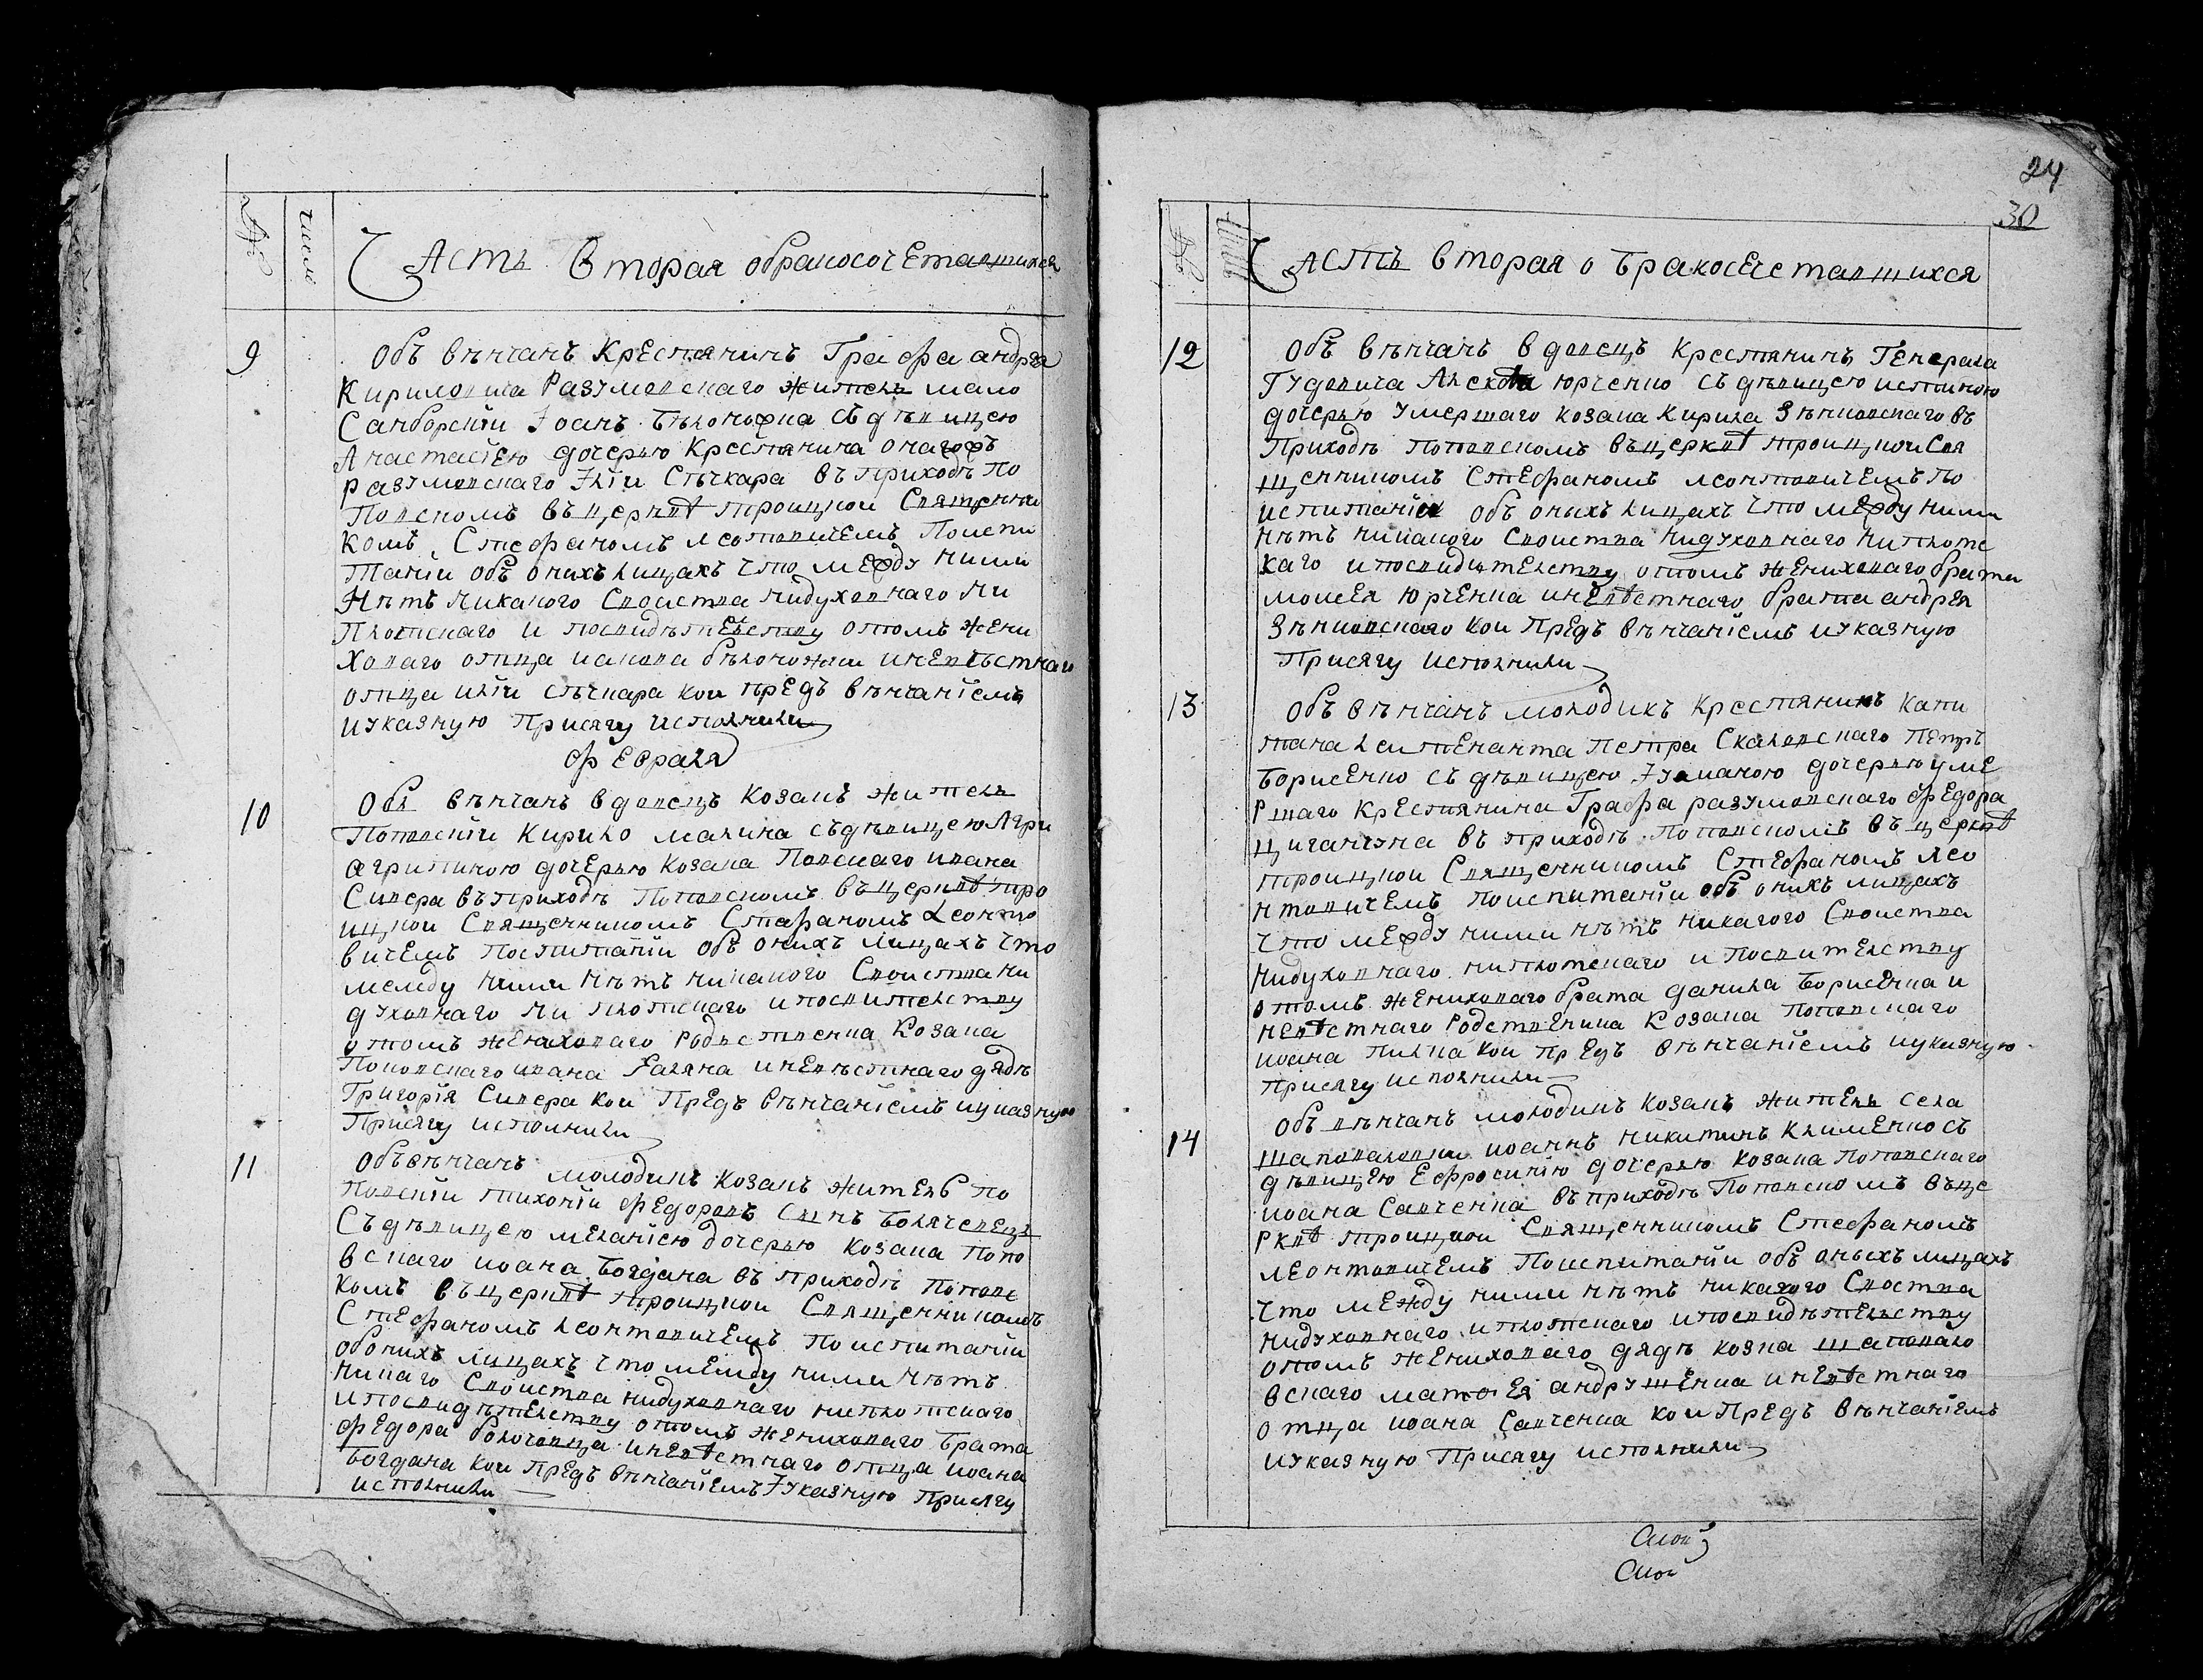 Число
Часть Вторая обракосочетавшихся
9
Объ вѣнчанъ Крестянинъ Графа андрея
Кириловича Разумовскаго житель мало
Санборскій Іоанъ Бѣлоножка съ дѣвицею
Анастасіею дочерью Крестянина онагожъ
Разумовскаго Іліи Стѣчкара въ приходѣ По
Повскомъ въ церквѣ троицкой Священни
комъ Стефаномъ Леонтовичемъ Поиспи
танііи объ онихъ лицахъ что между ними
Нѣтъ никакого Своиства нидуховнаго ни
Плотскаго и посвидѣтелству отомъ жени
ховаго отца иакова бѣлоножки иневѣстнаго
отца иліи стѣчкара кои предъ вѣнчаніемъ
иуказную Присягу исполнили
февраля
10
Обв вѣнчанъ вдовецъ козакъ житель
Поповскій Кирило малина съдѣвицею Агри
агрипиною дочерью козака Повскаго ивана
Сивера въ приходѣ Поповскомъ въ церквѣ тро
ицкой Священникомъ Стефаномъ Леонто
вичемъ Поспитаніи объ онихъ лицахъ что
между ними нѣтъ никакого Своиства ни
духовнаго ни плотскаго и посвителству
отомъ жениховаго родственика козака
Поповскаго ивана Галяна иневѣстнаго дядѣ
Григорія Сивера кои Предъ вѣнчаніемъ иуказную
Присягу исполнили
11
Объвѣнчанъ молодикъ козакъ житель По
Повскій тихоній федоровъ сынъ Болячевецъ
Съдѣвицею меланіею дочерью козака Попо
вскаго иоана Богдана въ приходѣ Поповс
комъ въ церквѣ троицкой Священникомъ
Стефаномъ Леонтовичемъ Поиспитаніи
обонихъ лицахъ что между ними нѣтъ
никаго Своиства нидуховнаго ниплотскаго
и посвидѣтелству отомъ жениховаго Брата
федора болочовца иневѣстнаго отца иоана
Богдана кои предъ вѣнчаніемъ Іуказную Присягу
исполнили
24
30
Часть вторая о Бракосечетавшихся
12
Объ вѣнчанъ вдовецъ крестянинъ Генерала
Гудовича Алексѣи юрченко съ дѣвицею истиною
дочерью умершаго козака Кирила Зѣнковскаго въ
Приходѣ Поповскомъ въ церквѣ троицкой Свя
щенникомъ Стефаномъ леонтовичемъ По
испитаніи объ онихъ лицахъ что между ними
нѣтъ никакого Своиства нидуховнаго ниплотс
каго и посвидѣтелству отомъ жениховаго брата
моисея юрченка иневѣстнаго брата андрея
Зѣнковскаго кои Предъ вѣнчаніемъ иуказную
Присягу исполнили
13
Объ вѣнчанъ молодикъ крестянинъ капи
тана леитенанта Петра Скаловскаго Петръ
Борисенко съ дѣвицею Іуманою дочерью уме
ршаго крестянина Графа разумовскаго федора
циганчука въ приходѣ Поповскомъ въ церквѣ
троицкой Священникомъ Стефаномъ лео
нтовичемъ Поиспитаніи объ онихъ лицахъ
что между ними нѣтъ никагого Своиства
нидуховнаго ниплотскаго и посвителству
отомъ жениховаго брата данила Борисенка и
невѣстнаго родственика козака Поповскаго
иоана Пилка кои предъ вѣнчаніемъ иуказную
Присягу исполнили
14
Объ вѣнчанъ молодикъ козакъ житель села
шаповаловки иоаннъ Никитинъ клименко съ
дѣвицею Ефросиніею дочерью козака Поповскаго
иоана Савченка въ приходѣ Поповскомъ въ це
рквѣ троицкой Священникомъ Стефаномъ
леонтовичемъ Поиспитаніи объ оныхъ лицахъ
что между ними нѣтъ никакого Своства
нидуховнаго иплотскаго и посвидѣтельству
отомъ жениховаго дядѣ козка шаповало
вскаго матфея андрушенка иневѣстнаго
отца иоана Савченка кои Предъ вѣнчаніемъ
иуказную Присягу исполнили